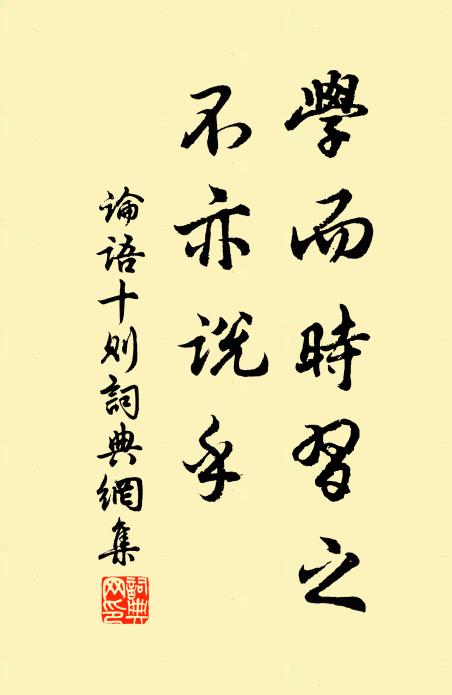 學而時習之
不亦説乎
论语十则詞典網集
詞典网印